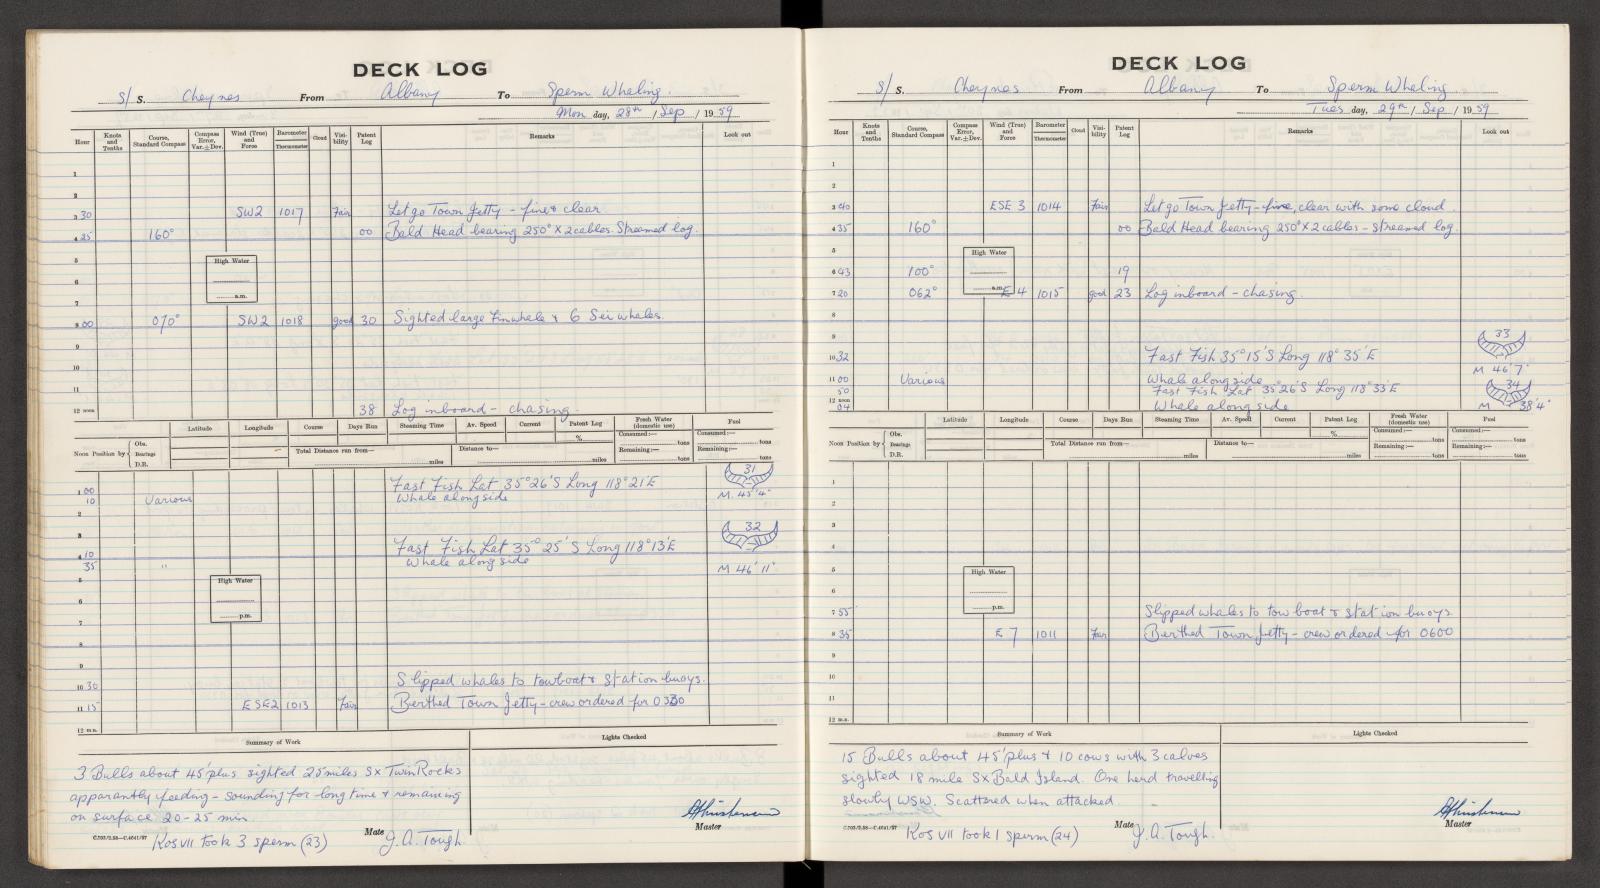 DECK LOG
S/ S. Cheynes From Albany To Sperm Whaling
Mon day, 28th / Sep / 1959
Hour Knots and Tenths Course, Standard Compass Compass Error, Var. ± Dev. Wind (True) and Force Barometer Thermometer Cloud Visibility Patent Log Remarks Look out
1
2
3 30 SW2 1017 Fair Let go Town Jetty - fine & clear
4 25 160° 00 Bald Head bearing 250° X 2 cables. Streamed log.
5
High Water
6
a.m.
7
8 00 070° SW2 1018 good 30 Sighted large Finwhale & 6 Sei whales.
9
10
11
12 noon 38 Log inboard - chasing.
Latitude Longitude Course Days Run Steaming Time Av. Speed Current Patent Log Fresh Water (domestic use) Fuel
% Consumed:— tons Consumed:— tons
Noon Position by Obs. Bearings D.R. Total Distance run from— miles Distance to— miles Remaining:— tons Remaining:— tons
1 00 Fast Fish Lat 35°26'S Long 118°21'E 31
10 Various Whale alongside M. 45'4"
2
3 32
4 10 Fast Fish Lat 35° 25'S Long 118°13'E
35 " Whale alongside M 46'11"
5
High Water
6
p.m.
7
8
9
10 30 Slipped whales to towboat & station buoys.
11 15 ESE2 1013 Fair Berthed Town Jetty - crew ordered for 0330
12 m.n.
Summary of Work Lights Checked
3 Bulls about 45' plus sighted 25 miles SX Twin Rocks
apparantly feeding - sounding for long time & remaining
on surface 20-25 min.
Master
C.703/2.58—C.4641/57 Kos VII took 3 sperm (23) Mate J. A. Tough.
DECK LOG
S/ S. Cheynes From Albany To Sperm Whaling
Tues day, 29th / Sep / 1959
Hour Knots and Tenths Course, Standard Compass Compass Error, Var. ± Dev. Wind (True) and Force Barometer Thermometer Cloud Visibility Patent Log Remarks Look out
1
2
3 40 ESE 3 1014 Fair Let go Town Jetty - fine, clear with some cloud.
4 35 160° 00 Bald Head bearing 250° X 2 cables - streamed log.
5
High Water
6 43 100° 19
a.m.
7 20 062° E 4 1015 good 23 Log inboard - chasing.
8
9 33
10 32 Fast Fish 35°15'S Long 118°35'E
M 46'7"
11 00 Various Whale alongside
50 Fast Fish Lat 35°26'S Long 118°33'E 34
12 noon
04 Whale alongside M 38'4"
Latitude Longitude Course Days Run Steaming Time Av. Speed Current Patent Log Fresh Water (domestic use) Fuel
% Consumed:— tons Consumed:— tons
Noon Position by Obs. Bearings D.R. Total Distance run from— miles Distance to— miles Remaining:— tons Remaining:— tons
1
2
3
4
5
High Water
6
p.m.
7 55 Slipped whales to tow boat & station buoys
8 35 E 7 1011 Fair Berthed Town Jetty - crew ordered for 0600
9
10
11
12 m.n.
Summary of Work Lights Checked
15 Bulls about 45' plus & 10 cows with 3 calves
sighted 18 mile SX Bald Island. One herd travelling
slowly WSW. Scattered when attacked.
Master
C.703/2.58—C.4641/57 Kos VII took 1 sperm (24) Mate J. A. Tough.